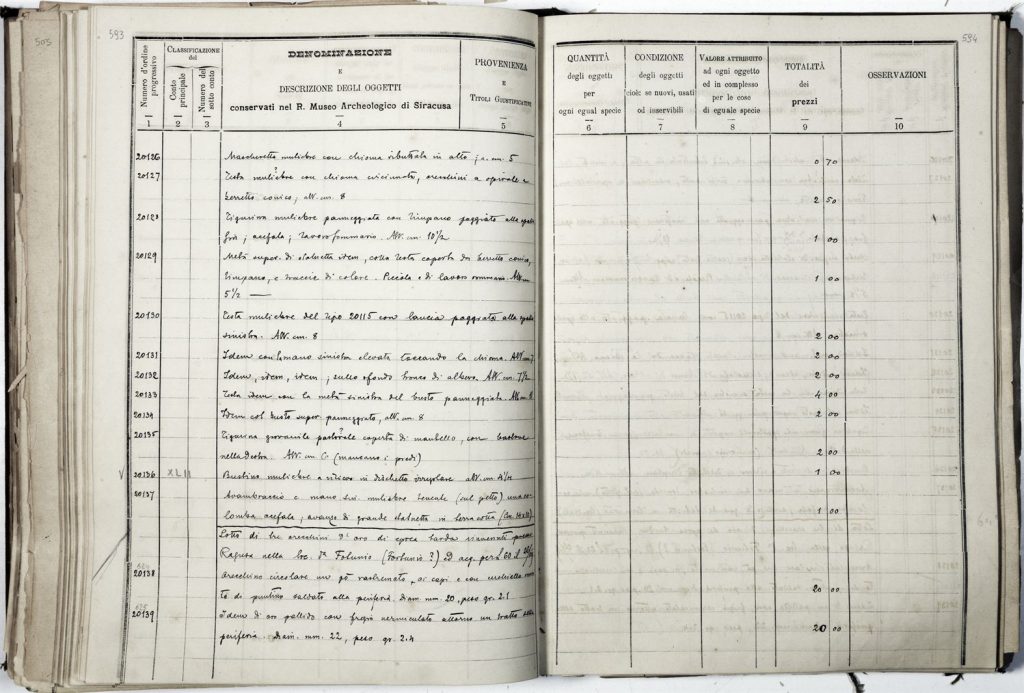 593
Numero d'ordine progressivo
CLASSIFICAZIONE del
Conto principale
Numero del sotto conto
DENOMINAZIONE
E
DESCRIZIONE DEGLI OGGETTI
conservati nel R. Museo Archeologico di Siracusa
PROVENIENZA
E
TITOLI GIUSTIFICATIVI
1 2 3 4 5
20126 Mascheretta muliebre con chioma ributtata in alto; a. cm. 5
20127 Testa muliebre con chioma orecchini a spirale e
berretto conico; alt. cm. 8
20128 Figurina muliebre panneggiata con timpano poggiato alla
acefala; lavoro sommario. Alt. cm. 10 1/2
20129 Metà super. di statuetta idem, colla testa coperta da berretto conico,
timpano, e traccie di colore. Piccola e di lavoro sommario. Alt. cm
5 1/2
20130 Testa muliebre del tipo 20115 con lancia poggiata alla spalla
sinistra. Alt. cm. 8
20131 Idem con la mano sinistra elevata toccando la chioma. Alt. cm 7
20132 Idem, idem, idem, sullo sfondo tronco di albero. Alt. cm. 7 1/2
20133 Testa idem con la metà sinistra del busto panneggiata. Alt. cm. 8
20134 Idem col busto super panneggiato, alt. cm. 8
20135 Figurina giovanile pastorale coperta di mantello, con bastone
nella destra. Alt. cm. (mancano i piedi)
V 20136 XLII Bustino muliebre a rilievo in dischetto irregolare alt. cm. 4 1/2
20137 Avambraccio e mano sin. muliebre (sul petto) una co-
lomba acefala, avanzo di grande statuetta in terracotta
Lotto di tre orecchini d'oro di epoca tarda rinvenuti presso
Ragusa nella loc. Fortunio (Fortunio?) ed acq. per £ 60 il
20138 Orecchino circolare un pò rastremato ai capi e con cerchietto
to di puntino saldato alla periferia. diam. mm. 20, peso gr. 2.1
625
20139 Idem di oro pallido con fregio vermiculato attorno un tratto
periferia. diam. mm. 22, peso gr. 2.4
594
QUANTITÀ
degli oggetti
per
ogni egual specie
6
CONDIZIONE
degli oggetti
cioè: se nuovi, usati
od inservibili
7
VALORE ATTRIBUITO
ad ogni oggetto
ed in complesso
per le cose
di eguale specie
8
TOTALITÀ
dei
prezzi
9
OSSERVAZIONI
10
0 70
2 50
1 00
1 00
2 00
2 00
2 00
4 00
2 00
2 00
1 00
1 00
20 00
20 00